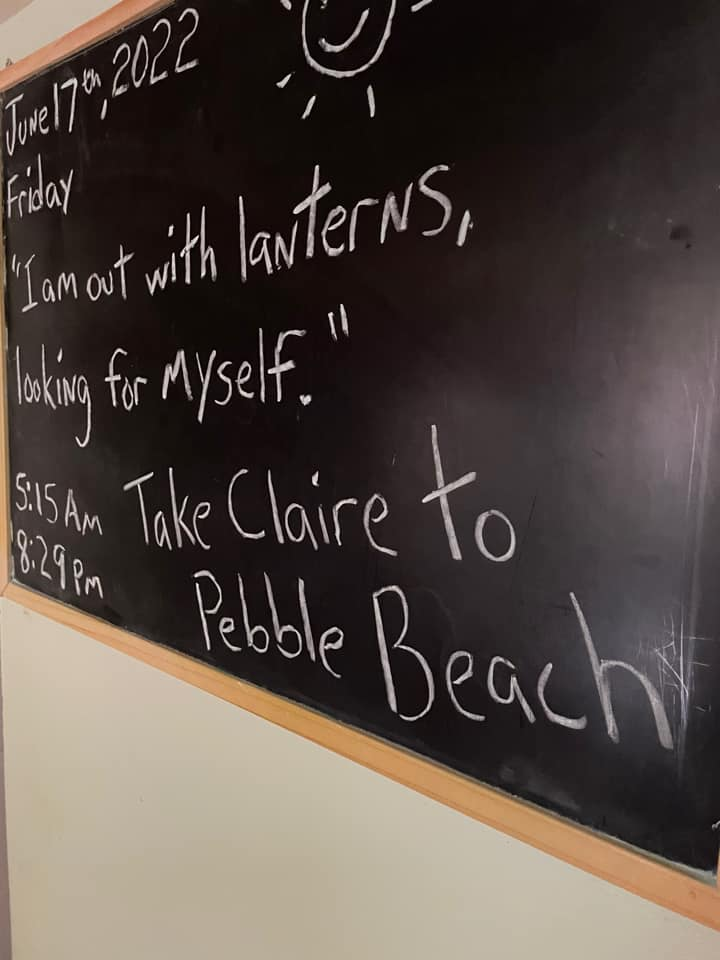 June 17th, 2022
Friday
"I am out with lanterns,
looking for myself."
5:15 AM
8:29 PM
Take Claire to
Pebble Beach